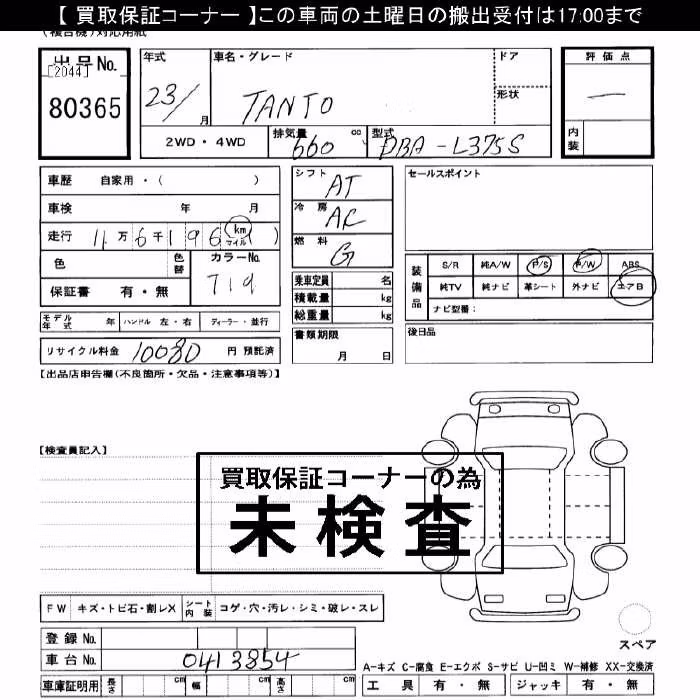 【 買取保証コーナー 】この車両の土曜日の搬出受付は17:00まで
(複合機)対応用紙
出品No.
[2044]
80365
年式
23/
月
車名・グレード
TANTO
ドア
形状
評価点
—
内装
2WD・4WD
排気量
660
cc
型式
DBA-L375S
車歴 自家用・( )
車検 年 月
走行 11万6千196 km マイル )
色
色替
カラーNo.
T19
保証書 有・無
モデル年式 年
ハンドル 左・右
ディーラー・並行
リサイクル料金 10080 円 預託済
シフト
AT
冷房
AC
燃料
G
乗車定員 名
積載量 kg
総重量 kg
書類期限
月 日
セールスポイント
装備品
S/R 純A/W P/S P/W ABS
純TV 純ナビ 革シート 外ナビ エアB
ナビ型番:
後日品
【出品店申告欄(不良箇所・欠品・注意事項等)】
【検査員記入】
買取保証コーナーの為
未検査
FW キズ・トビ石・割レX
シート内装 コゲ・穴・汚レ・シミ・破レ・スレ
登録No.
車台No. 0413854
車庫証明用 長さ cm 幅 cm 高さ cm
スペア
A-キズ C-腐食 E-エクボ S-サビ U-凹ミ W-補修 XX-交換済
工具 有・無 ジャッキ 有・無